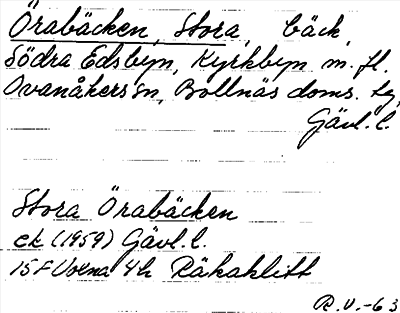 Örabäcken, Stora, bäck,
Södra Edsbyn, Kyrkbyn m. fl.
Ovanåkers sn, Bollnäs doms. tg,
Gävl. l.
Stora Örabäcken
ek (1959) Gävl. l.
15 F Voxna 4h Räkaklitt
R.V.-63